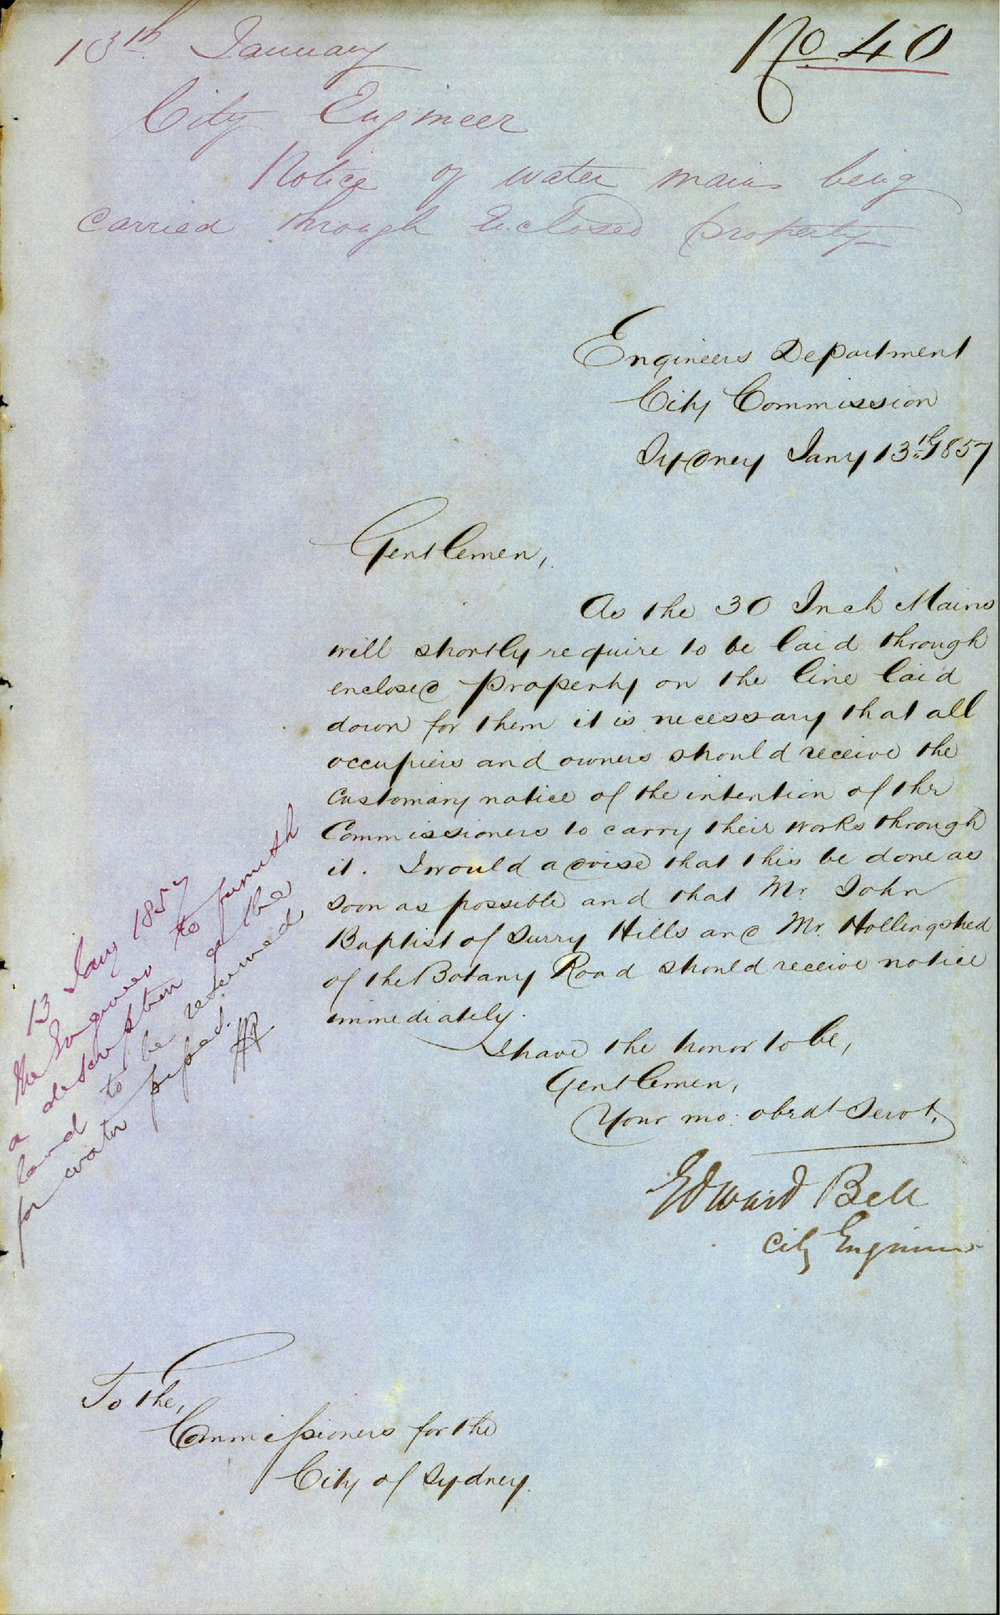 13th January
No 40
City Engineer
Notice of water mains being
carried through Enclosed property
Engineers Department
City Commission
Sydney Jany 13th 1857
Gentlemen,
As the 30 Inch Mains
will shortly require to be laid through
enclosed property on the line laid
down for them it is necessary that all
occupiers and owners should receive the
Customary notice of the intention of the
Commissioners to carry their works through
it. I would advise that this be done as
soon as possible and that Mr. John
Baptist of Surry Hills and Mr. Hollingshed
of the Botany Road should receive notice
immediately.
I have the honor to be,
Gentlemen,
Your mo: obedt Servt,
Edward Bell
City Engineer
13 Jany 1857
The Engineer to furnish
a description of the
land to be resumed
for water pipes.
To the,
Commissioners for the
City of Sydney.